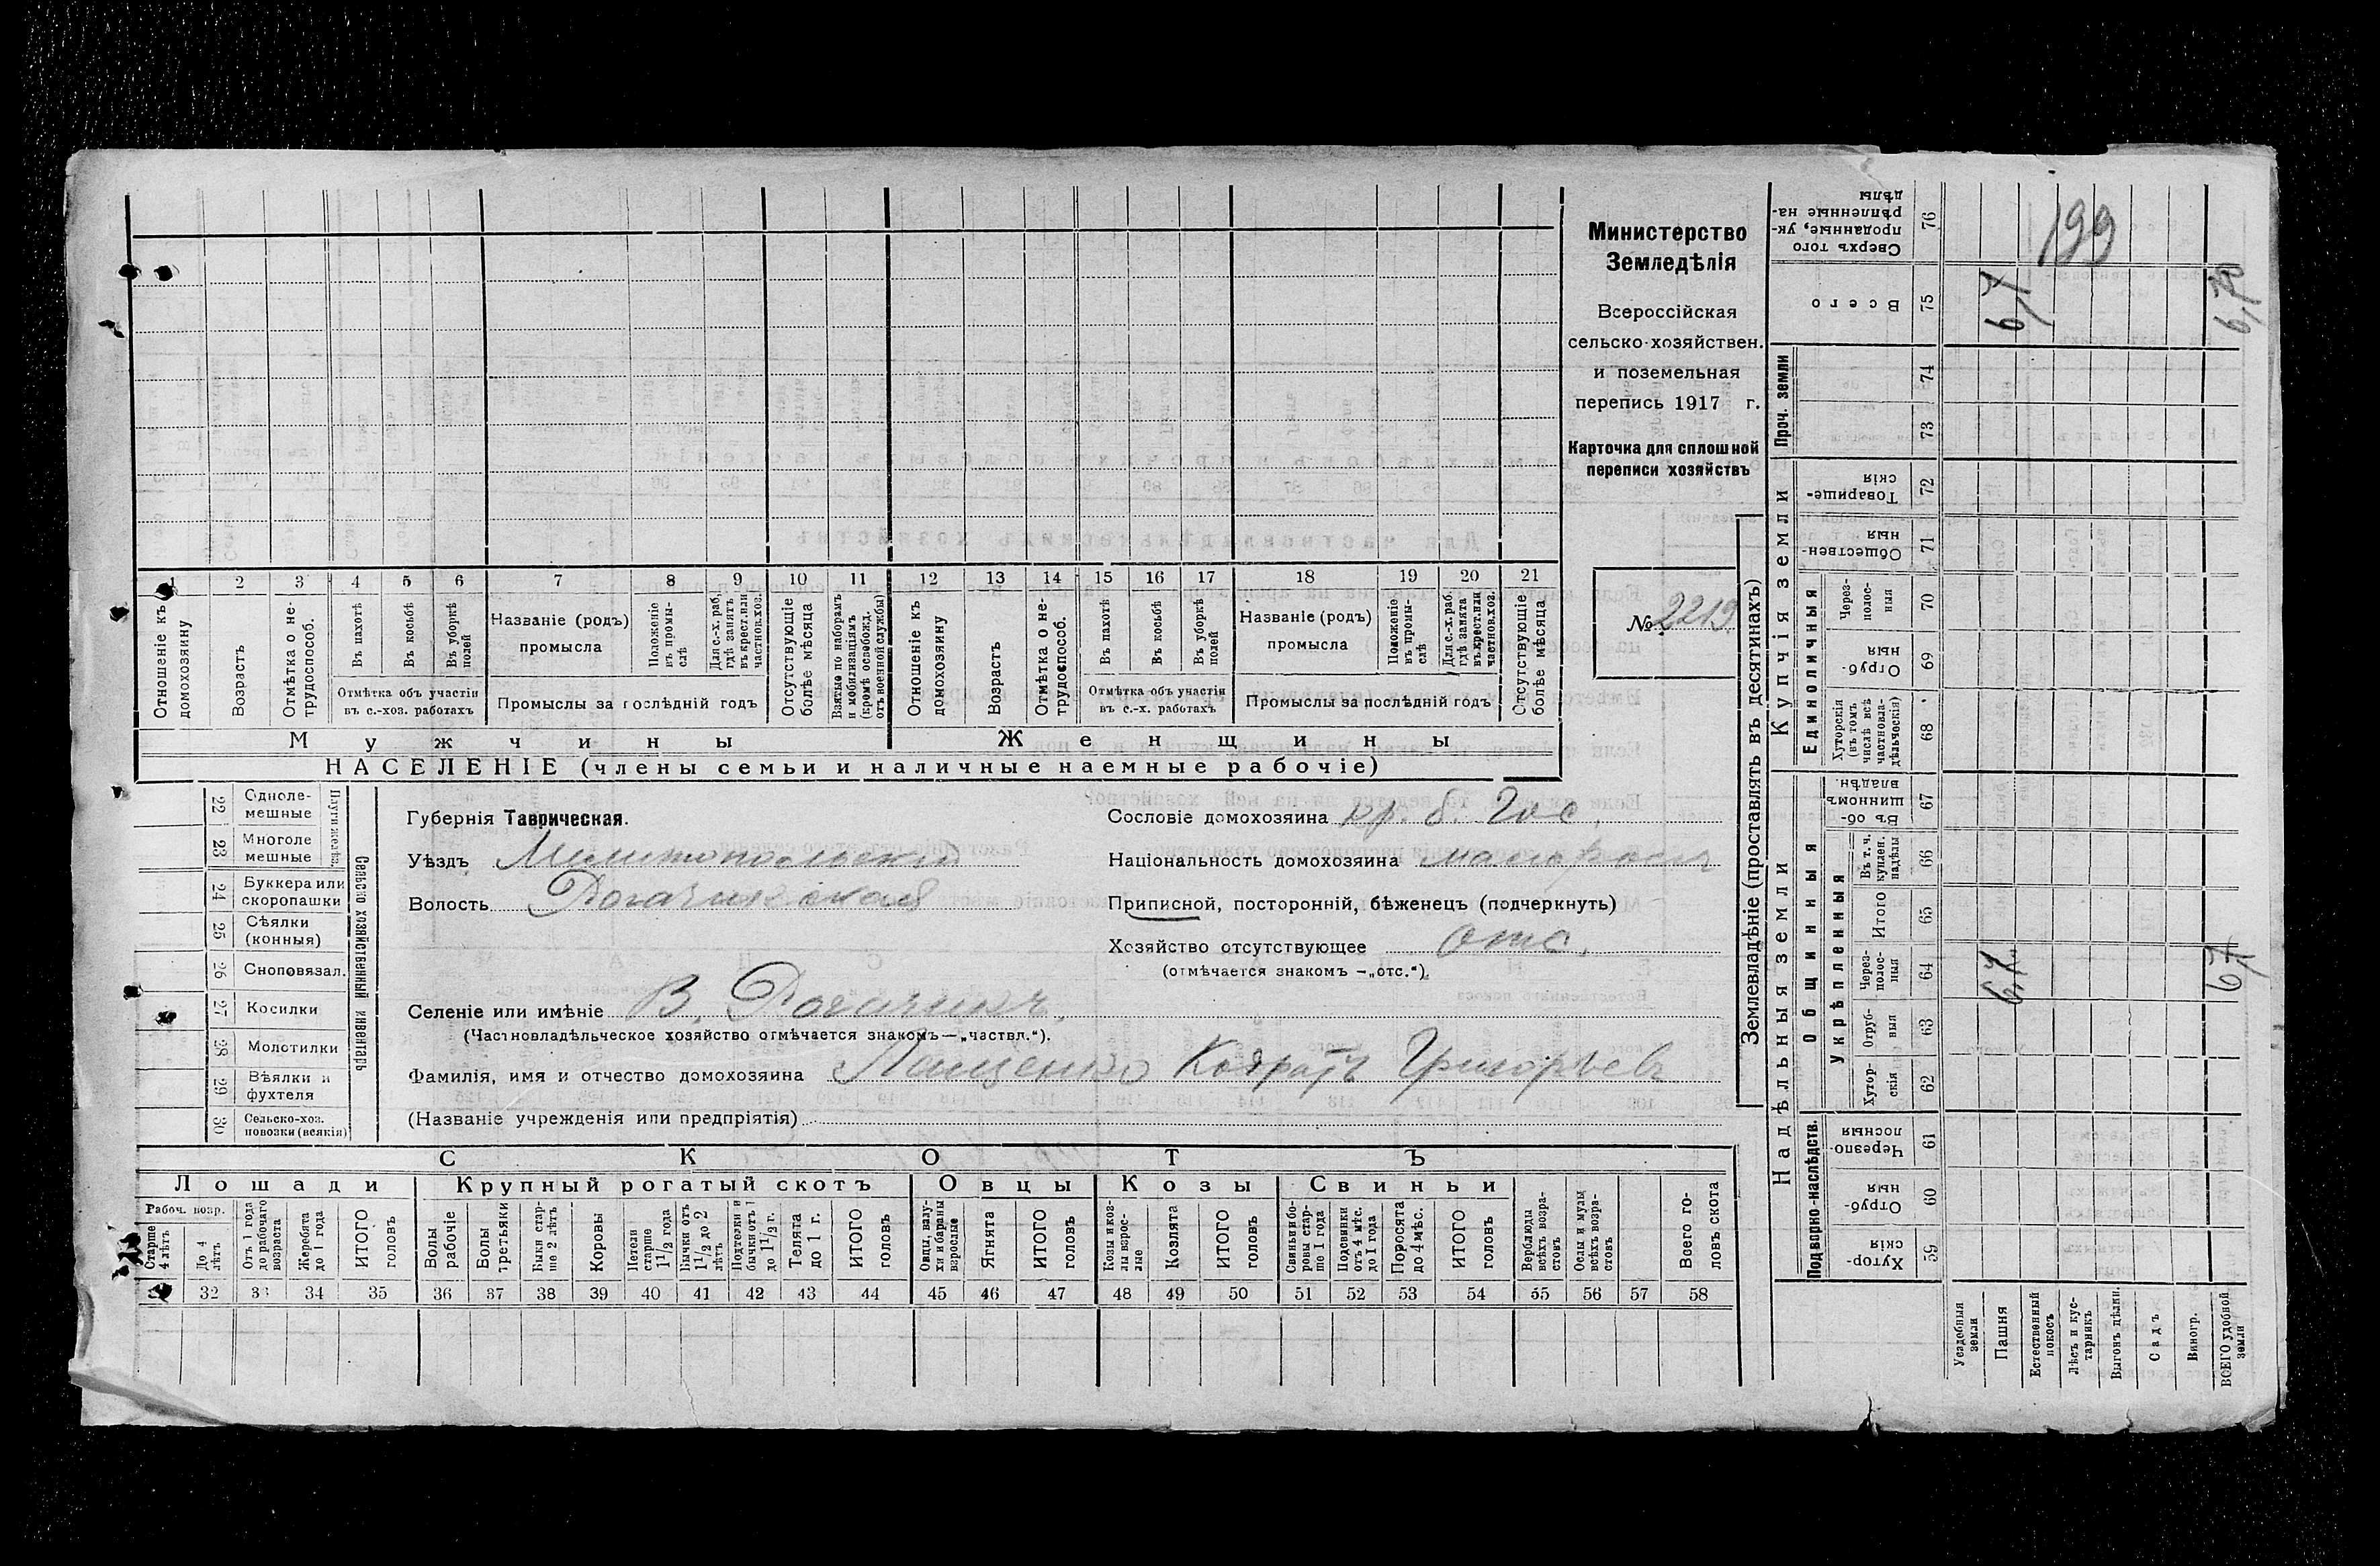 Министерство
Земледѣлія
Всероссійская
сельско-хозяйствен.
и поземельная
перепись 1917 г.
Карточка для сплошной
переписи хозяйствъ
№ 2219
1 2 3 4 5 6 7 8 9 10 11 12 13 14 15 16 17 18 19 20 21
Отношеніе къ домохозяину
Возрастъ
Отмѣтка о не-трудоспособ.
Въ пахотѣ
Въ косьбѣ
Въ уборкѣ полей
Отмѣтка объ участіи въ с.-хоз. работахъ
Названіе (родъ) промысла
Положеніе въ промы-слѣ
Для с.-х. раб. гдѣ занятъ въ крест. или частнов. хоз.
Промыслы за послѣдній годъ
Отсутствующіе болѣе мѣсяца
Взятые по наборамъ и мобилизаціямъ (кромѣ освобожд. отъ военной службы)
Отношеніе къ домохозяину
Возрастъ
Отмѣтка о не-трудоспособ.
Въ пахотѣ
Въ косьбѣ
Въ уборкѣ полей
Отмѣтка объ участіи въ с.-х. работахъ
Названіе (родъ) промысла
Положеніе въ промы-слѣ
Для с.-х. раб. гдѣ занята въ крест. или частнов. хоз.
Промыслы за послѣдній годъ
Отсутствующіе болѣе мѣсяца
Мужчины Женщины
НАСЕЛЕНІЕ (члены семьи и наличные наемные рабочіе)
Сельско хозяйственный инвентарь
22 Одноле-мешные
23 Многоле мешные
24 Буккера или скоропашки
25 Сѣялки (конныя)
26 Сноповязал.
27 Косилки
28 Молотилки
29 Вѣялки и фухтеля
30 Сельско-хоз. повозки (всякія)
Губернія Таврическая.
Уѣздъ Мелитопольскій
Волость Рогачикская
Селеніе или имѣніе В. Рогачикъ
(Частновладѣльческое хозяйство отмѣчается знакомъ—„частвл.“).
Сословіе домохозяина кр. б. Гос.
Національность домохозяина
Приписной, посторонній, бѣженецъ (подчеркнуть)
Хозяйство отсутствующее отс.
(отмѣчается знакомъ —„отс.“).
Фамилія, имя и отчество домохозяина Лащенко Григорьев
(Названіе учрежденія или предпріятія)
СКОТЪ
Лошади Крупный рогатый скотъ Овцы Козы Свиньи
Рабоч. возр.
Старше 4 лѣтъ
До 4 лѣтъ
Отъ 1 года до рабочаго возраста
Жеребята до 1 года
ИТОГО головъ
Волы рабочіе
Волы третьяки
Быки стар-ше 2 лѣтъ
Коровы
Нетели старше 1 1/2 года
Бычки отъ 1 1/2 до 2 лѣтъ
Подтелки и бычки отъ 1 до 1 1/2 г.
Телята до 1 г.
ИТОГО головъ
Овцы, валу-хи и бараны взрослые
Ягнята
ИТОГО головъ
Козы и коз-лы взрос-лые
Козлята
ИТОГО головъ
Свиньи и бо-ровы стар-ше 1 года
Подсвинки отъ 4 мѣс. до 1 года
Поросята до 4 мѣс.
ИТОГО головъ
Верблюды всѣхъ возра-стовъ
Ослы и мулы всѣхъ возра-стовъ
Всего го-ловъ скота
32 33 34 35 36 37 38 39 40 41 42 43 44 45 46 47 48 49 50 51 52 53 54 55 56 57 58
Землевладѣніе (проставлять въ десятинахъ)
Надѣльныя земли Купчія земли Проч. земли
Подворно-наслѣдств.
Общинныя
Укрѣпленныя
Единоличныя
59 Хутор-скія
60 Отруб-ныя
61 Черезпо-лосныя
62 Хутор-скія
63 Отруб-ныя
64 Через-полос-ныя
65 Итого
66 Въ т. ч. куплен. надѣлы
67 Въ об-щинномъ владѣн.
68 Хуторскія (въ томъ числѣ всѣ частновла-дѣльческія)
69 Отруб-ныя
70 Через-полос-ныя
71 Обществен-ныя
72 Товарище-скія
73
74
75 Всего
76 Сверхъ того проданные, ук-рѣпленные на-дѣлы
Усадебныя земли
Пашня
Естественный покосъ
Лѣсъ и кус-тарникъ
Выгонъ цѣлин.
Садъ
Виногр.
ВСЕГО удобной земли
199
6,7
6,7
6,7